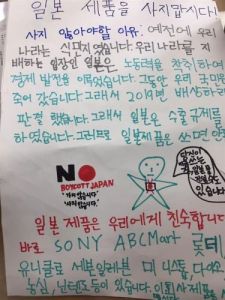 일본 제품을 사지맙시다!
사지 않아야할 이유. 예전에 우리
나라는 식민지였습니다. 우리나라를 지
배하는 입장인 일본은 노동력을 착취하여
경제 발전을 이뤘었습니다. 그동안 우리 국민은
죽어 갔습니다. 그래서 2019년 배상하라
판결 했습니다. 그래서 일본은 수출규제를
하였습니다. 그러므로 일본제품은 쓰면 안
NO
BOYCOTT JAPAN
"가지 않습니다"
"사지 않습니다"
있습니다
일본 제품은 우리에게 친숙합니다
바로 SONY ABC Mart 롯데
유니클로 세븐일레븐 미니스톱, 다이소
농심, 등이 있습니다. 이 회사 제품을